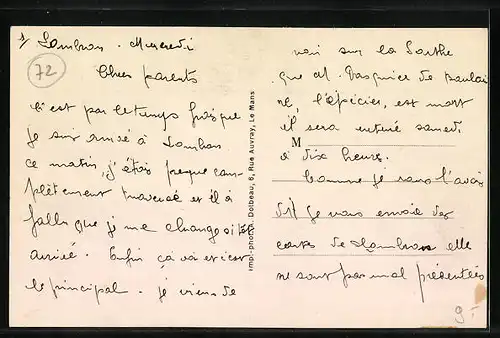 1/ Lombron. Mercredi
72
Chers parents
C'est par le temps frisquet
je suis arrivé à Lombron
ce matin, j'étais presque com-
plètement traversé et il a
fallu que je me change sitôt
arrivé. Enfin ça va et c'est
le principal. Je viens de
Impl. photogr. Dolbeau, 6, Rue Auvray, Le Mans
voir sur la Sarthe
que M. Pasquier de
l'épicier, est mort
M
il sera enterré samedi
à dix heures.
Comme je vous l'avais
dit je vous envoie des
cartes de Lombron elle
ne sont pas mal présentées
9.-